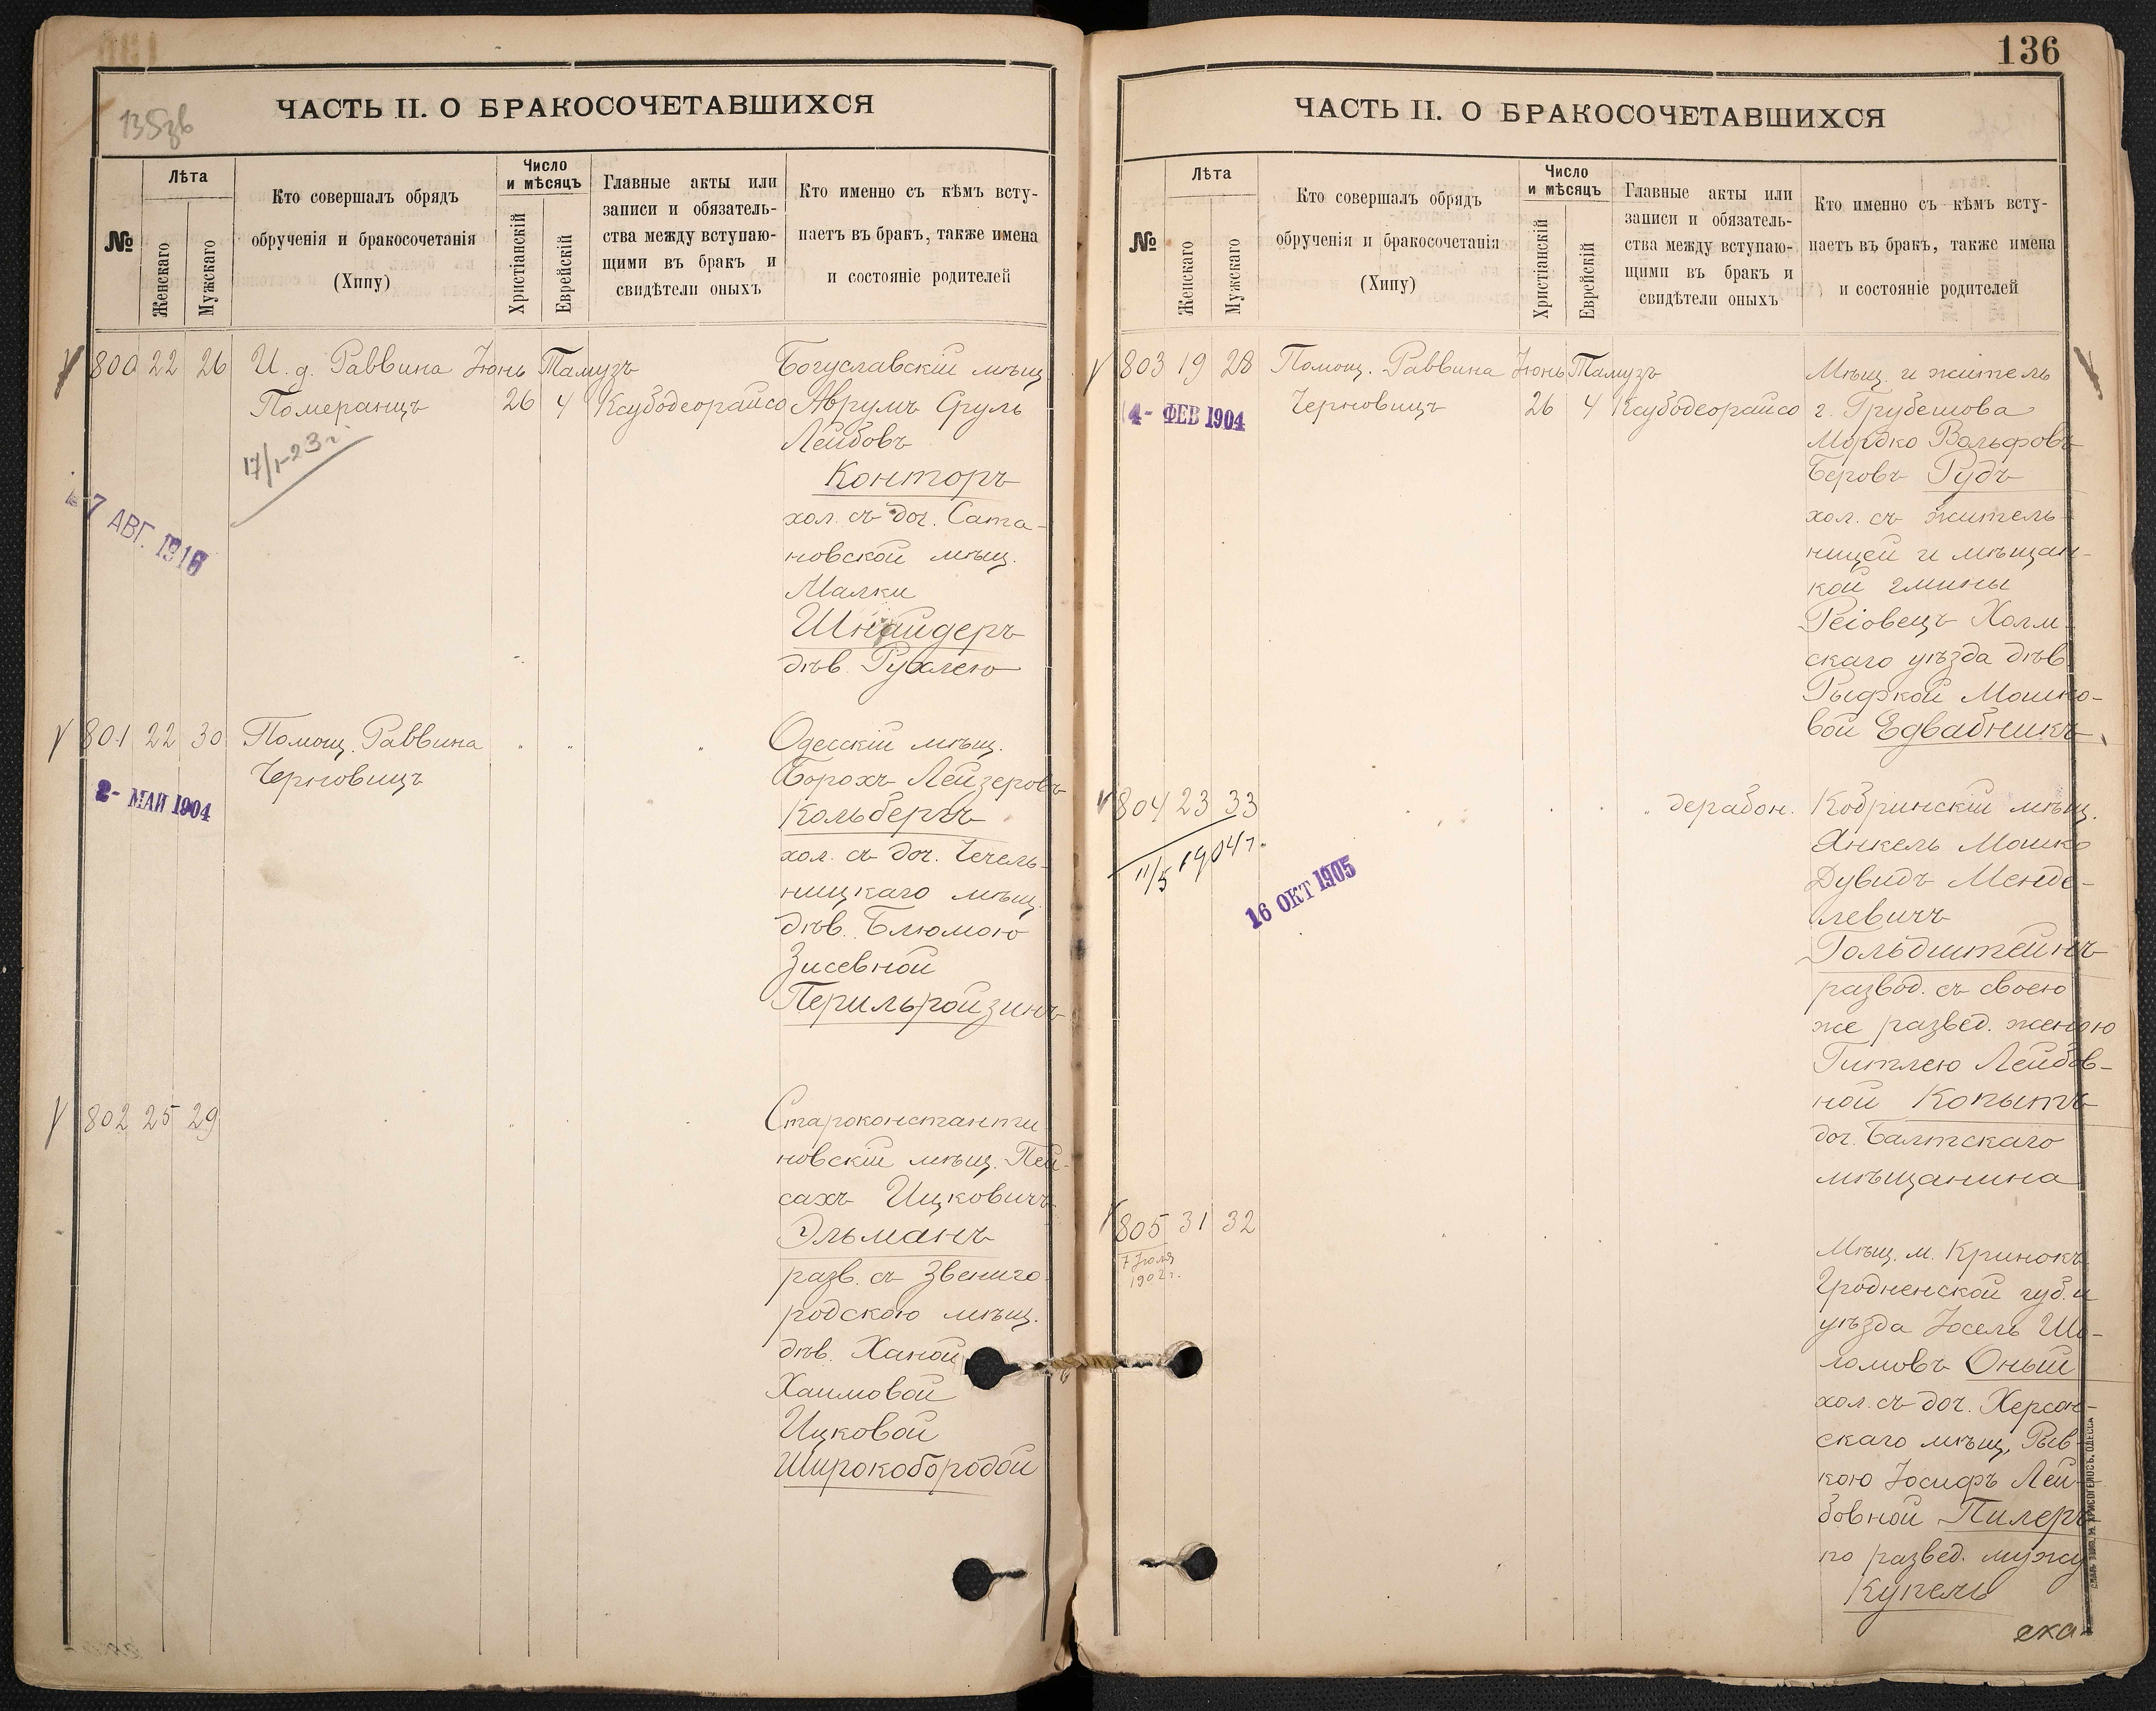 135зв
ЧАСТЬ II. О БРАКОСОЧЕТАВШИХСЯ
№
Лѣта
Женскаго
Мужскаго
Кто совершалъ обрядъ
обрученія и бракосочетанія
(Хипу)
Число
и мѣсяцъ
Христіанскій
Еврейскій
Главные акты или
записи и обязатель-
ства между вступаю-
щими въ бракъ и
свидѣтели оныхъ
Кто именно съ кѣмъ всту-
паетъ въ бракъ, также имена
и состояніе родителей
800 22 26 И. д. Раввина Іюнь Тамузъ Богуславскій мѣщ
Померанцъ 26 4 Ксубодеорайсо Аврумъ Сруль
Лейбовъ
17/I-23 г.
Конторъ
хол. съ доч. Сата-
7 АВГ. 1916
новской мѣщ.
Малки
Шнайдеръ
дѣв. Рухлею
801 22 30 Помощ. Раввина " " " Одесскій мѣщ.
Черновицъ
Борохъ Лейзеровъ
2- МАЙ 1904
Кольбергъ
хол. съ доч. Чечель-
ницкаго мѣщ.
дѣв. Блюмою
Зисевной
Перильройзинъ
802 25 29
Староконстанти
новскій мѣщ. Пей-
сахъ Ицковичъ
Эльманъ
разв. съ Звениго-
родскою мѣщ.
дѣв. Ханой
Хаимовой
Ицковой
Широкобородой
136
ЧАСТЬ II. О БРАКОСОЧЕТАВШИХСЯ
№
Лѣта
Женскаго
Мужскаго
Кто совершалъ обрядъ
обрученія и бракосочетанія
(Хипу)
Число
и мѣсяцъ
Христіанскій
Еврейскій
Главные акты или
записи и обязатель-
ства между вступаю-
щими въ бракъ и
свидѣтели оныхъ
Кто именно съ кѣмъ всту-
паетъ въ бракъ, также имена
и состояніе родителей
803 19 28 Помощ. Раввина Іюнь Тамузъ Мѣщ. и житель
Черновицъ 26 4 Ксубодеорайсо г. Грубешова
4- ФЕВ 1904
Мордко Вольфовъ
Беровъ Рудъ
хол. съ житель-
ницей и мѣщан-
кой гмины
Реіовецъ Холм-
скаго уѣзда дѣв.
Рыфкой Мошко-
вой Едвабникъ
804 23 33 " дерабон. Кобринскій мѣщ.
11/5 1904 г.
Янкель Мошко
16 ОКТ 1905
Дувидъ Менде-
левичъ
Гольдштейнъ
развод. съ своею
же развед. женою
Гитлею Лейбов-
ной Копытъ
доч. Балтскаго
мѣщанина
805 31 32
7 Іюля
1902 г.
Мѣщ. м. Кринокъ
Гродненской губ. и
уѣзда Іосель Шо-
ломовъ Оный
хол. съ доч. Херсон-
скаго мѣщ. Рыв-
кою Іосифъ Лей-
бовной Пилеръ
по развед. мужу
Купель